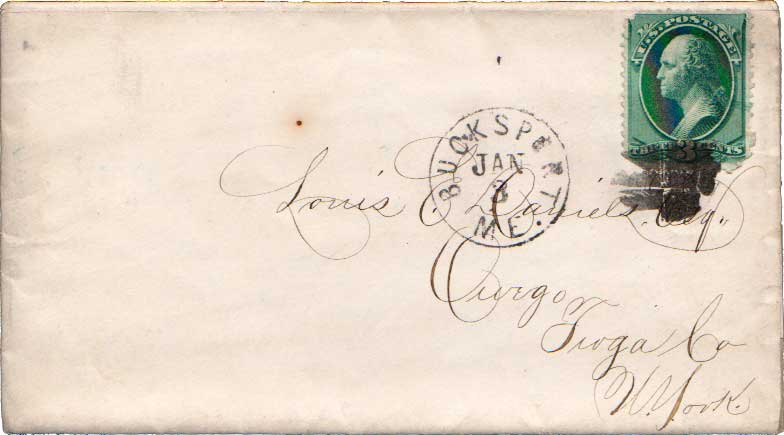 U.S. POSTAGE
THREE 3 CENTS
BUCKSPORT
JAN
3
ME.
Louis C. Daniels, Esq.,
Owego
Tioga Co
N. York.